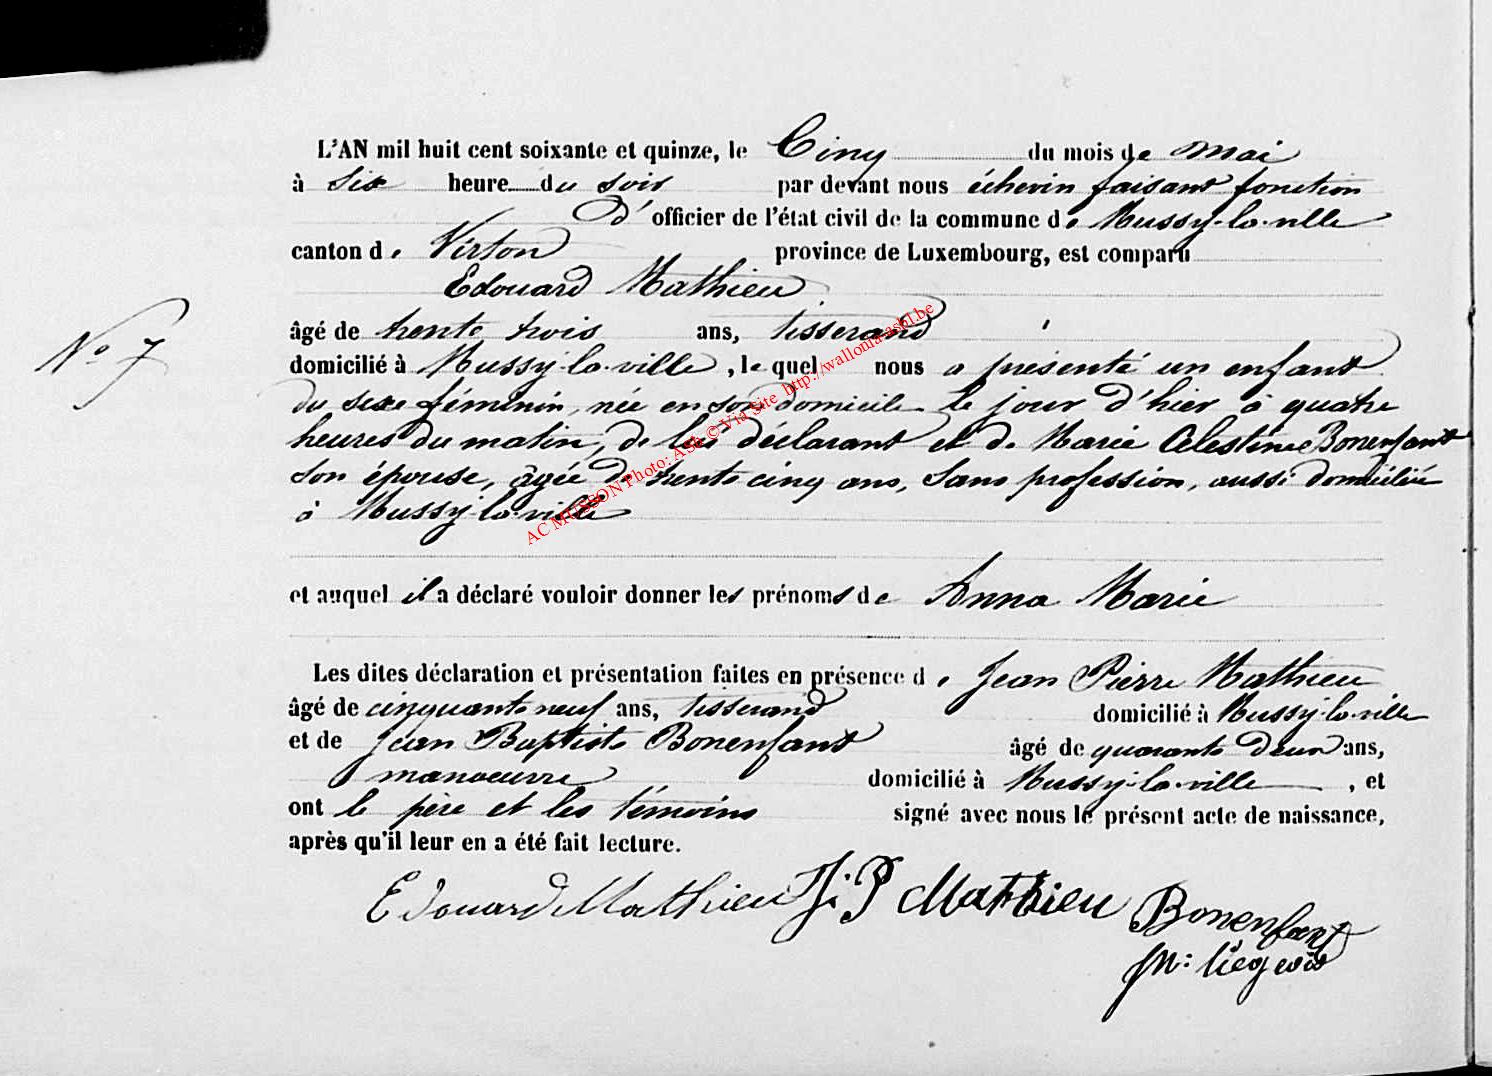 L'AN mil huit cent soixante et quinze, le Cinq du mois de mai
à Six heure du soir par devant nous échevin faisant fonction
d'officier de l'état civil de la commune de Mussy-la-ville
canton de Virton province de Luxembourg, est comparu
Edouard Mathieu
âgé de trente trois ans, tisserand
N° 7
domicilié à Mussy-la-ville, le quel nous a présenté un enfant
du sexe féminin, née en son domicile le jour d'hier à quatre
heures du matin, de lui déclarant et de Marie Celestine Bonenfant
son épouse, agée de trente cinq ans, Sans profession, aussi domiciliée
à Mussy-la-ville
et auquel il a déclaré vouloir donner les prénoms de Anna Marie
Les dites déclaration et présentation faites en présence de Jean Pierre Mathieu
âgé de cinquante neuf ans, tisserand domicilié à Mussy-la-ville
et de Jean Baptiste Bonenfant âgé de quarante deux ans,
manoeuvre domicilié à Mussy-la-ville, et
ont le père et les témoins signé avec nous le présent acte de naissance,
après qu'il leur en a été fait lecture.
Edouard Mathieu J. P Mathieu Bonenfant
liégeois
AC MUSSON Photo: ASh © Via Site http://wallonia-asbl.be